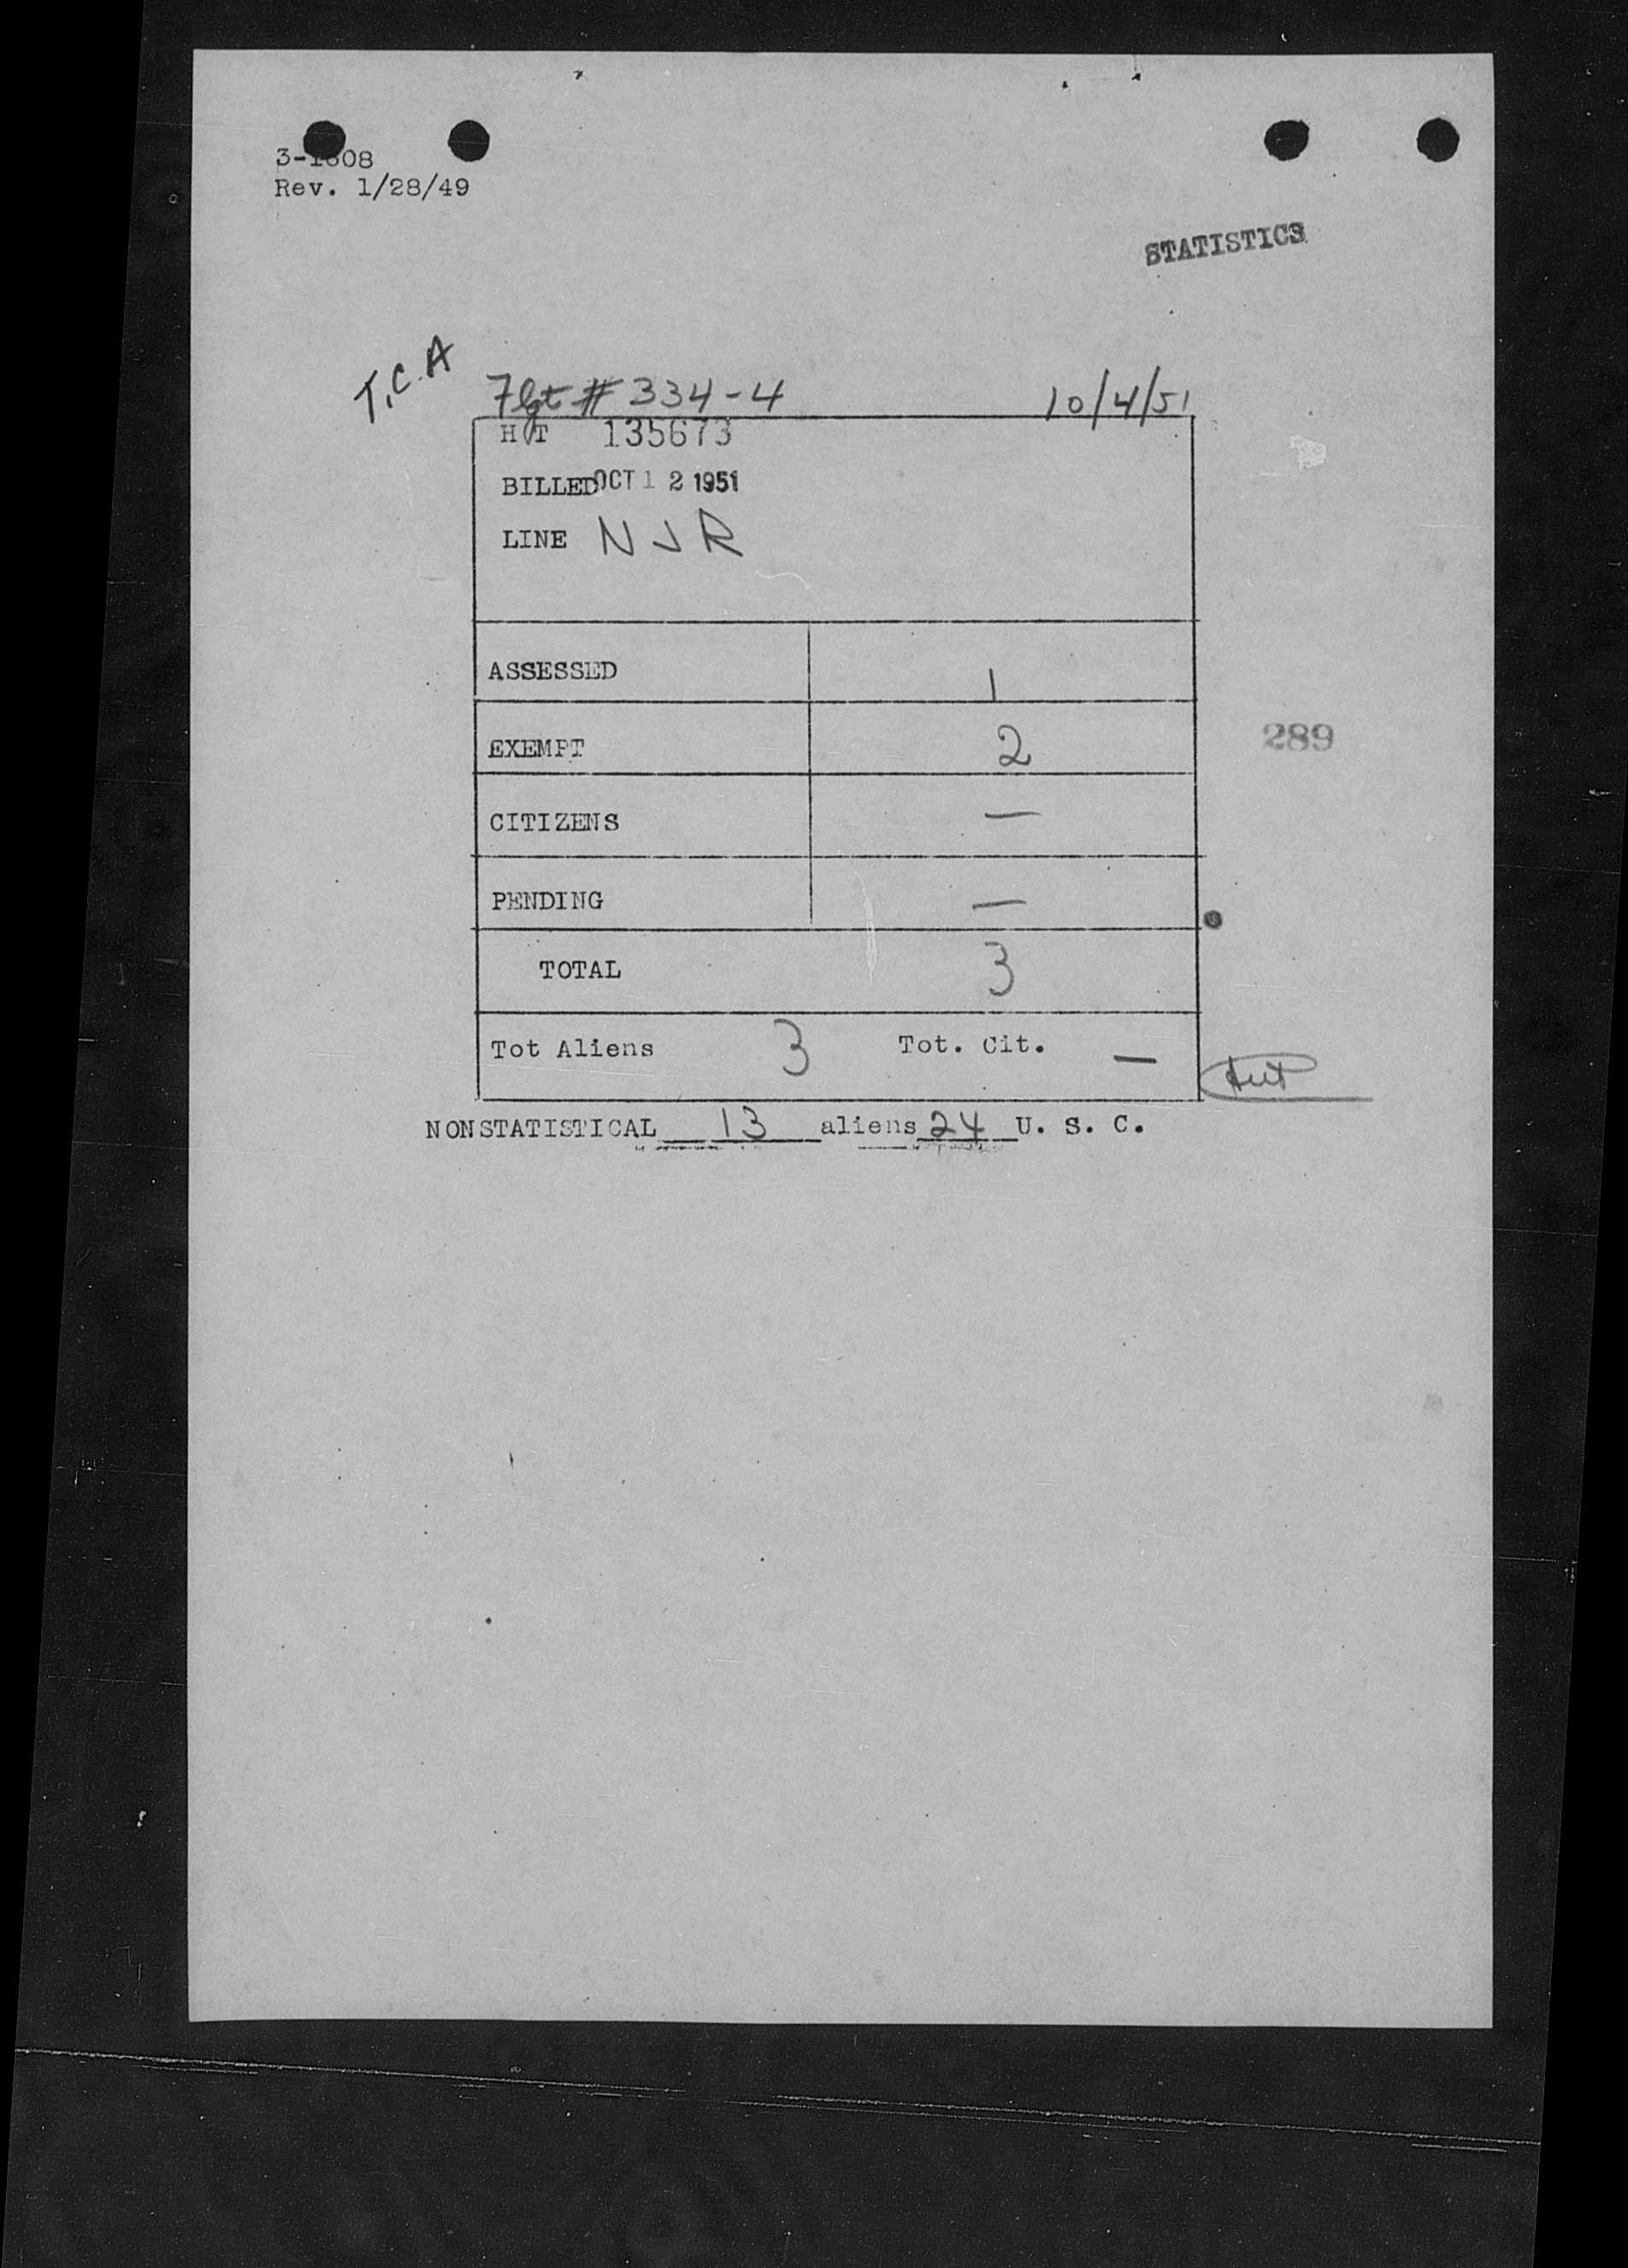 3-1608
Rev. 1/28/49
STATISTICS
T.C.A
Flgt # 334-4 10/4/51
H T 135673
BILLED OCT 12 1951
LINE NJR
ASSESSED 1
EXEMPT 2
289
CITIZENS —
PENDING —
TOTAL 3
Tot Aliens 3 Tot. Cit. —
NONSTATISTICAL 13 aliens 24 U. S. C.